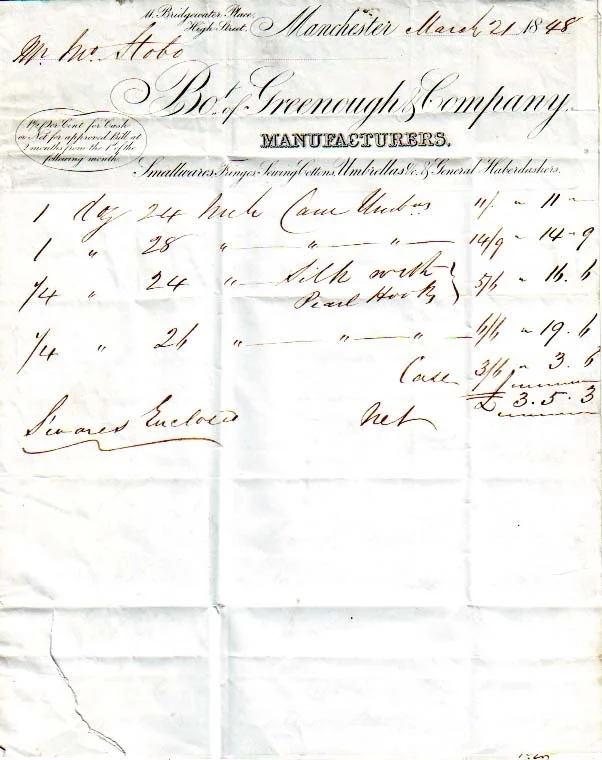 11. Bridgewater Place,
High Street,
Manchester March 21 1848
Mr Wm Stobo
Bot. of Greenough & Company
MANUFACTURERS.
Per Cent for Cash
or Net for approved Bill at
2 months from the 1st of the
following month
Smallwares, Fringes, Sewing Cottons, Umbrellas &c. & General Haberdashers.
1 doz 24 Inch Cane Umbas 11/. " 11 "
1 " 28 " " " 14/9 " 14 " 9
1/4 " 24 " Silk with
Pearl Hooks } 5/6 " 16. 6
1/4 " 26 " " " 6/6 " 19. 6
Case 3/6 " 3. 6
£ 3. 5. 3
Enclosed Net